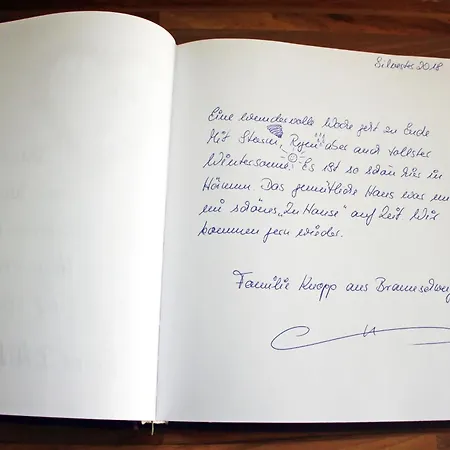 Silvester 2018
Eine wundervolle Woche geht zu Ende
Mit Sturm, Regen aber auch tollster
Wintersonne. Es ist so schön hier in
Hörnum Das gemütliche Haus war un
ein schönes „Zu Hause" auf Zeit Wir
kommen gern wieder.
Familie Knopp aus Braunschweig